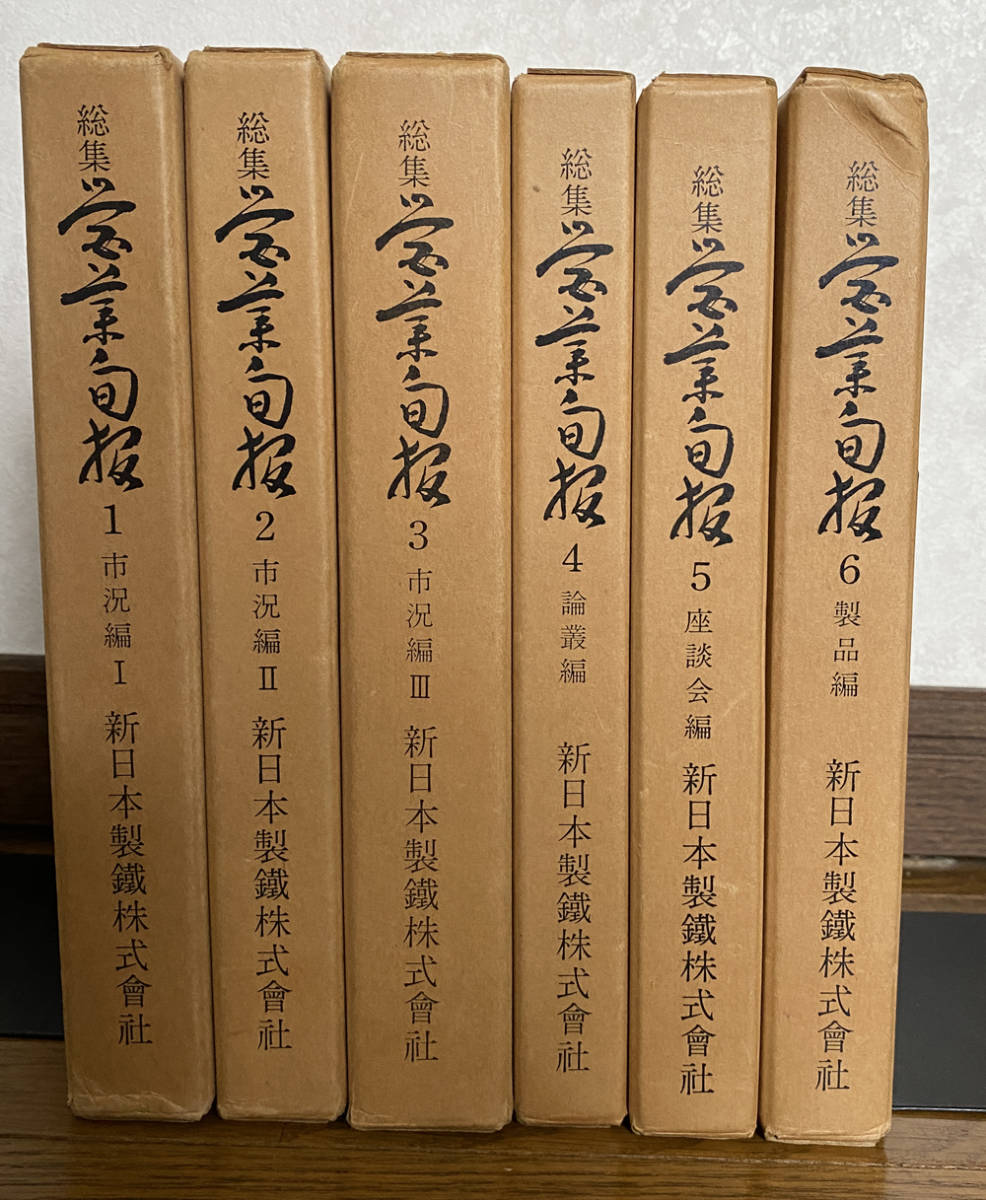 総集 営業旬報 1 市況編 Ⅰ 新日本製鐵株式會社
総集 営業旬報 2 市況編 Ⅱ 新日本製鐵株式會社
総集 営業旬報 3 市況編 Ⅲ 新日本製鐵株式會社
総集 営業旬報 4 論叢編 新日本製鐵株式會社
総集 営業旬報 5 座談会編 新日本製鐵株式會社
総集 営業旬報 6 製品編 新日本製鐵株式會社